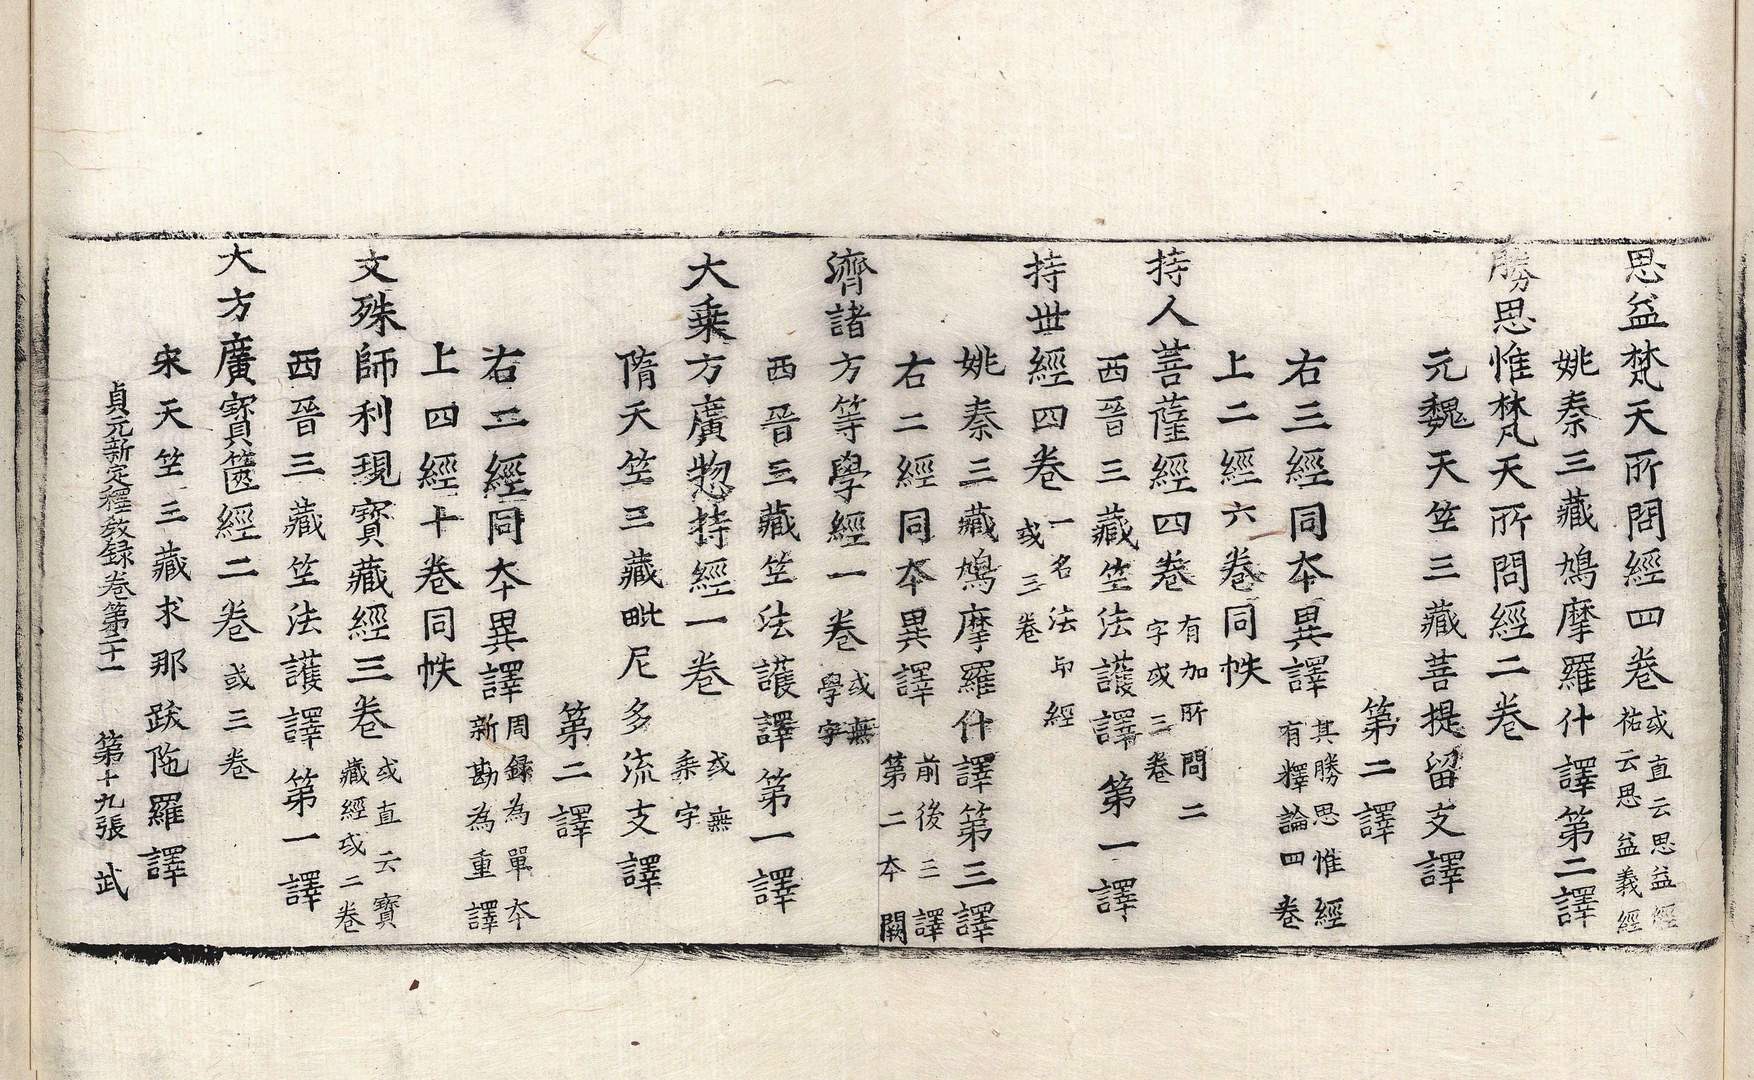 思益梵天所問經四卷 或直云思益經祐云思益義經
姚秦三藏鳩摩羅什譯第二譯
勝思惟梵天所問經二卷
元魏天竺三藏菩提留支譯
第二譯
右三經同本異譯 其勝思惟經有釋論四卷
上二經六卷同帙
持人菩薩經四卷 有加所問二字或三卷
西晉三藏竺法護譯第一譯
持世經四卷 一名法印經或三卷
姚秦三藏鳩摩羅什譯第三譯
右二經同本異譯 前後三譯第二本闕
濟諸方等學經一卷 或無學字
西晉三藏竺法護譯第一譯
大乗方廣惣持經一卷 或無乗字
隋天竺三藏毗尼多流支譯
第二譯
右二經同本異譯 周録為單本新勘為重譯
上四經十卷同帙
文殊師利現寶藏經三卷 或直云寶藏經或二卷
西晉三藏竺法護譯第一譯
大方廣寶篋經二卷 或三卷
宋天竺三藏求那跋陁羅譯
貞元新定釋教録卷第二十一 第十九張 武